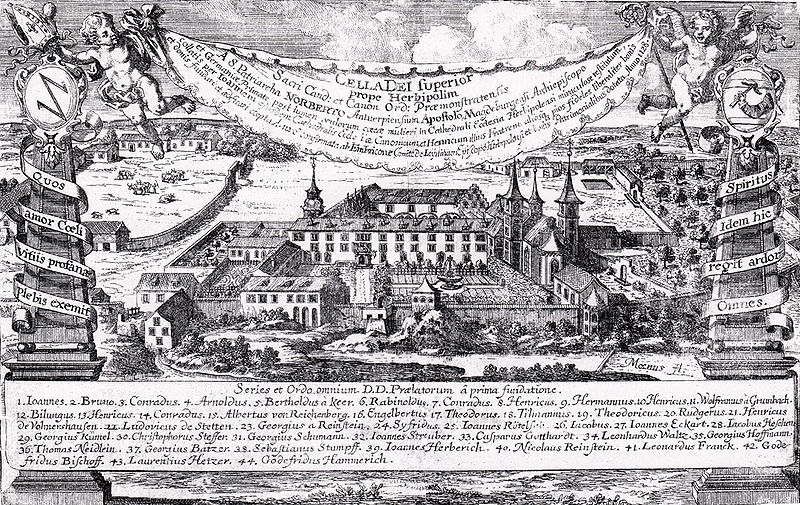 CELLA DEI superior
prope Herbipolim
Sacri Candi: et Canon: Ord: Præmonstratensis
à S. Patriarcha NORBERTO Antuerpiensium Apostolo, Magdeburgensi Archiepiscopo
et Germaniæ Primate per lumen oculorum cœcæ mulieri in Cathedrali Ecclesia Herbipolensi
fundata
Quos
amor Cœli
vitiis profanæ
plebis exemit
Spiritus
Idem hic
regit ardor
Omnes.
Mœnus fl.
Series et Ordo omnium D.D. Prælatorum â prima fundatione.
1. Ioannes. 2. Bruno. 3. Conradus. 4. Arnoldus. 5. Bertholdus à Keer. 6. Rabinoldus. 7. Conradus. 8. Henricus. 9. Hermannus. 10. Henricus. 11. Wolframus à Grunbach.
12. Bilungus. 13. Henricus. 14. Conradus. 15. Albertus von Reichenberg. 16. Engelbertus 17. Theodorus. 18. Tilmannus. 19. Theodoricus. 20. Rudgerus. 21. Henricus
de Volmershausen. 22. Ludovicus de Stetten. 23. Georgius a Reinstein. 24. Syfridus. 25. Ioannes 26. Iacobus. 27. Ioannes Eckart. 28. Iacobus
29. Georgius Kümel. 30. Christophorus Steffer. 31. Georgius Schumann. 32. Ioannes Struber. 33. Casparus Gutthardt. 34. Leonhardus Waltz. 35. Georgius Hoffmann.
36. Thomas Neidlein. 37. Georgius Batzer. 38. Sebastianus Stumpff. 39. Ioannes Herberich. 40. Nicolaus Reinstein. 41. Leonardus Franck. 42. Gode-
fridus Bischoff. 43. Laurentius Heizer. 44. Godefridus Hammerich.